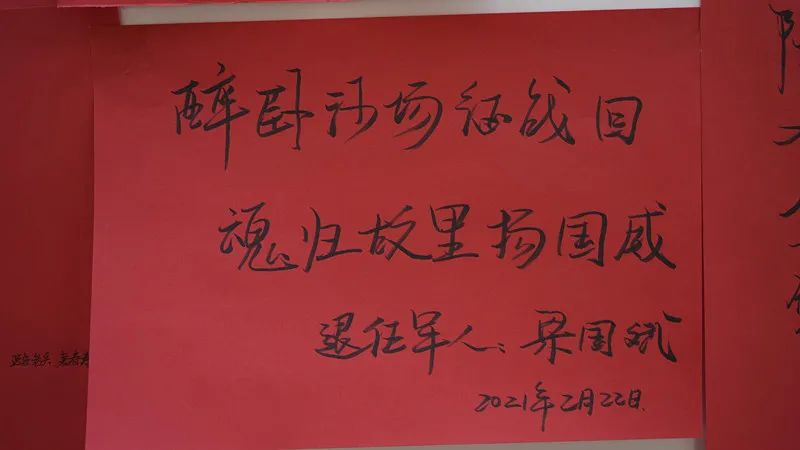 醉卧沙场征战回
魂归故里扬国威
退任军人：梁国斌
2021年2月22日